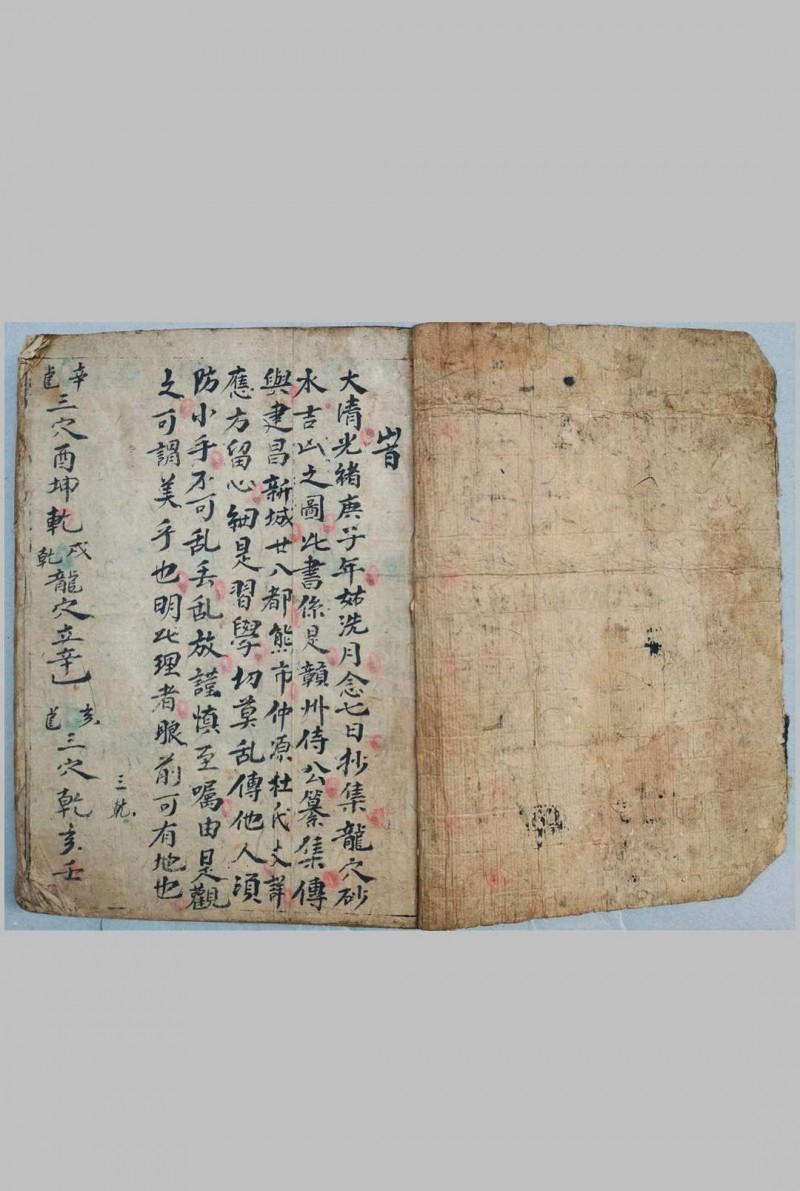 大清光緒庚子年姑洗月念七日抄集龍穴砂
水吉凶之圖此書係是贛州侍公纂集傳
與建昌新城廿八都熊市仲源杜氏文詳
應方留心細是習學切莫乱傳他人須
防小手不可乱丢乱放謹慎至囑由是觀
之可謂美乎也明此理者眼前可有地也
三乾
辛
三穴酉坤乾戌乾龍穴立辛
亥
三穴乾亥壬